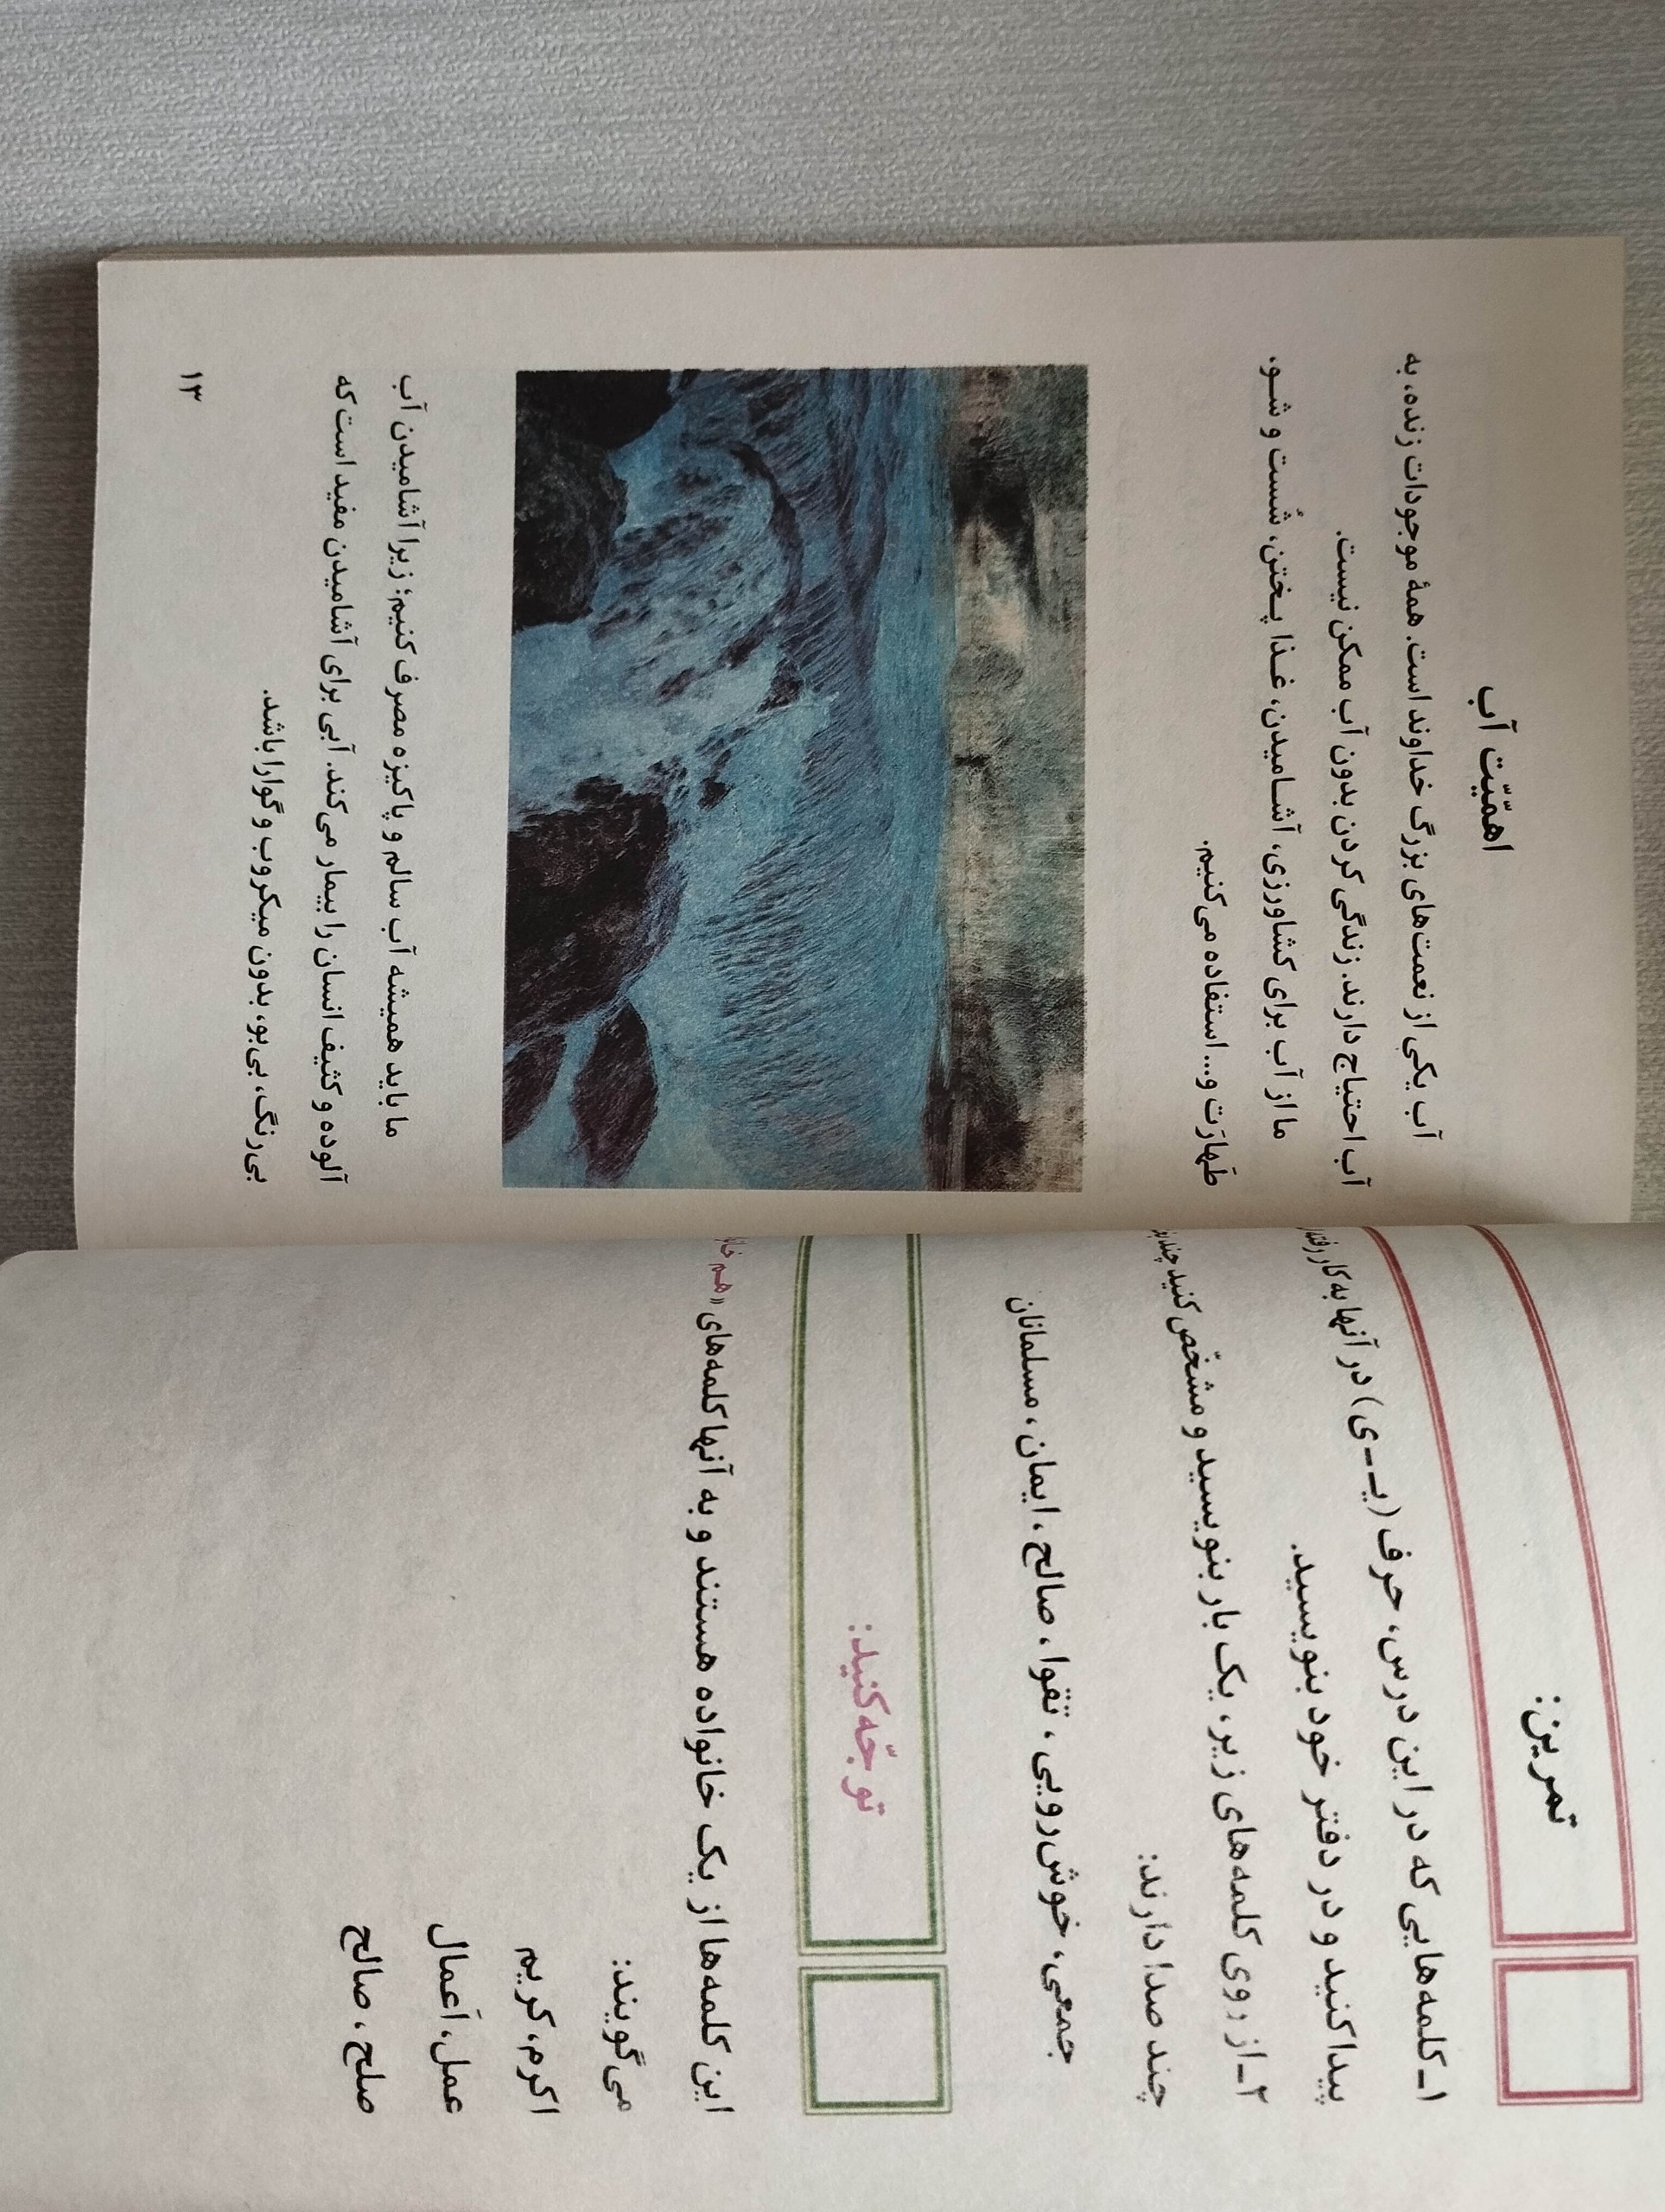 تمرین:
۱ـ کلمه‌هایی که در این درس، حرف (یـ ـ ی) در آنها به کار رفته
پیدا کنید و در دفتر خود بنویسید.
۲ـ از روی کلمه‌های زیر، یک بار بنویسید و مشخّص کنید
چند صدا دارند:
جمعی، خوش‌رویی، تقوا، صالح، ایمان، مسلمانان
توجّه کنید:
این کلمه‌ها از یک خانواده هستند و به آنها کلمه‌های «هم
می‌گویند:
اکرم، کریم
عمل، اَعمال
صلح، صالح
اهمّیّت آب
آب یکی از نعمت‌های بزرگ خداوند است. همهٔ موجودات زنده، به
آب احتیاج دارند. زندگی کردن بدون آب ممکن نیست.
ما از آب برای کشاورزی، آشـامیدن، غـذا پـختن، شُست و شـو،
طَهارَت و... استفاده می‌کنیم.
ما باید همیشه آب سالم و پاکیزه مصرف کنیم؛ زیرا آشامیدن آب
آلوده و کثیف انسان را بیمار می‌کند. آبی برای آشامیدن مفید است که
بی‌رنگ، بی‌بو، بدون میکروب و گوارا باشد.
۱۳